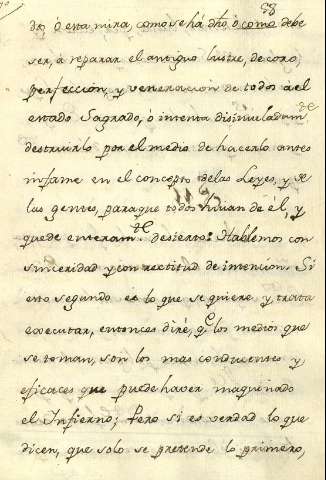 do ó esta mira, como se há dho, ó como debe
ser, a reparar el antiguo lustre, decoro,
perfeccion, y veneracion de todos a el
estado Sagrado, ó intenta disimuladamte
destruirlo por el medio de hacerlo antes
infame en el concepto delas Leyes, y de
las gentes, paraque todos huian de él, y
quede enteramte desierto? Hablemos con
sinceridad y con rectitud de intencion. Si
esto segundo es lo que se quiere, y trata
executar, entonces diré, qe los medios que
se toman, son los mas conducentes y
eficaces que puede haver maquinado
el Infierno; Pero si es verdad lo que
dicen, que solo se pretende lo primero,